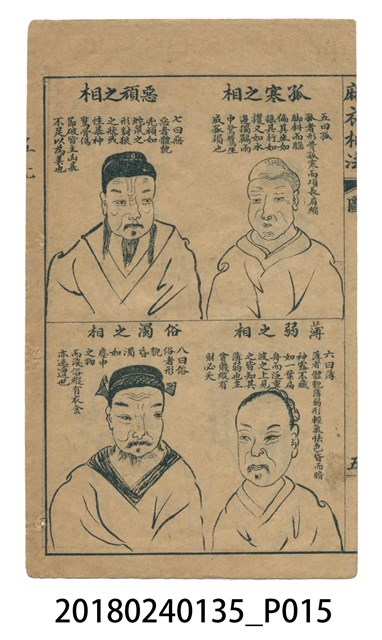 麻衣相法
圖
孤寒之相
五曰孤
孤者形骨孤寒而項長肩縮
脚斜而腦
偏其坐如
搖其行如
攫又如水
邊獨鶴雨
中鷺鷥生
成孤獨也
惡頑之相
七曰惡
惡者體貌
兇頑如
蛇鼠之
形豺狼
之狀或
性暴神
驚骨傷
節破皆主凶暴
不足以為美也
薄弱之相
六曰薄
薄者體貌薄弱形輕氣怯色昏而暗
神露不藏
如一葉扁
舟而泛重
波之上見
之皆知其
薄弱也主
貧賤縱有
財必夭
俗濁之相
八曰俗
俗者形
貌昏濁如
塵中
之物
而淺俗縱有衣食
亦迍邅也
20180240135_P015